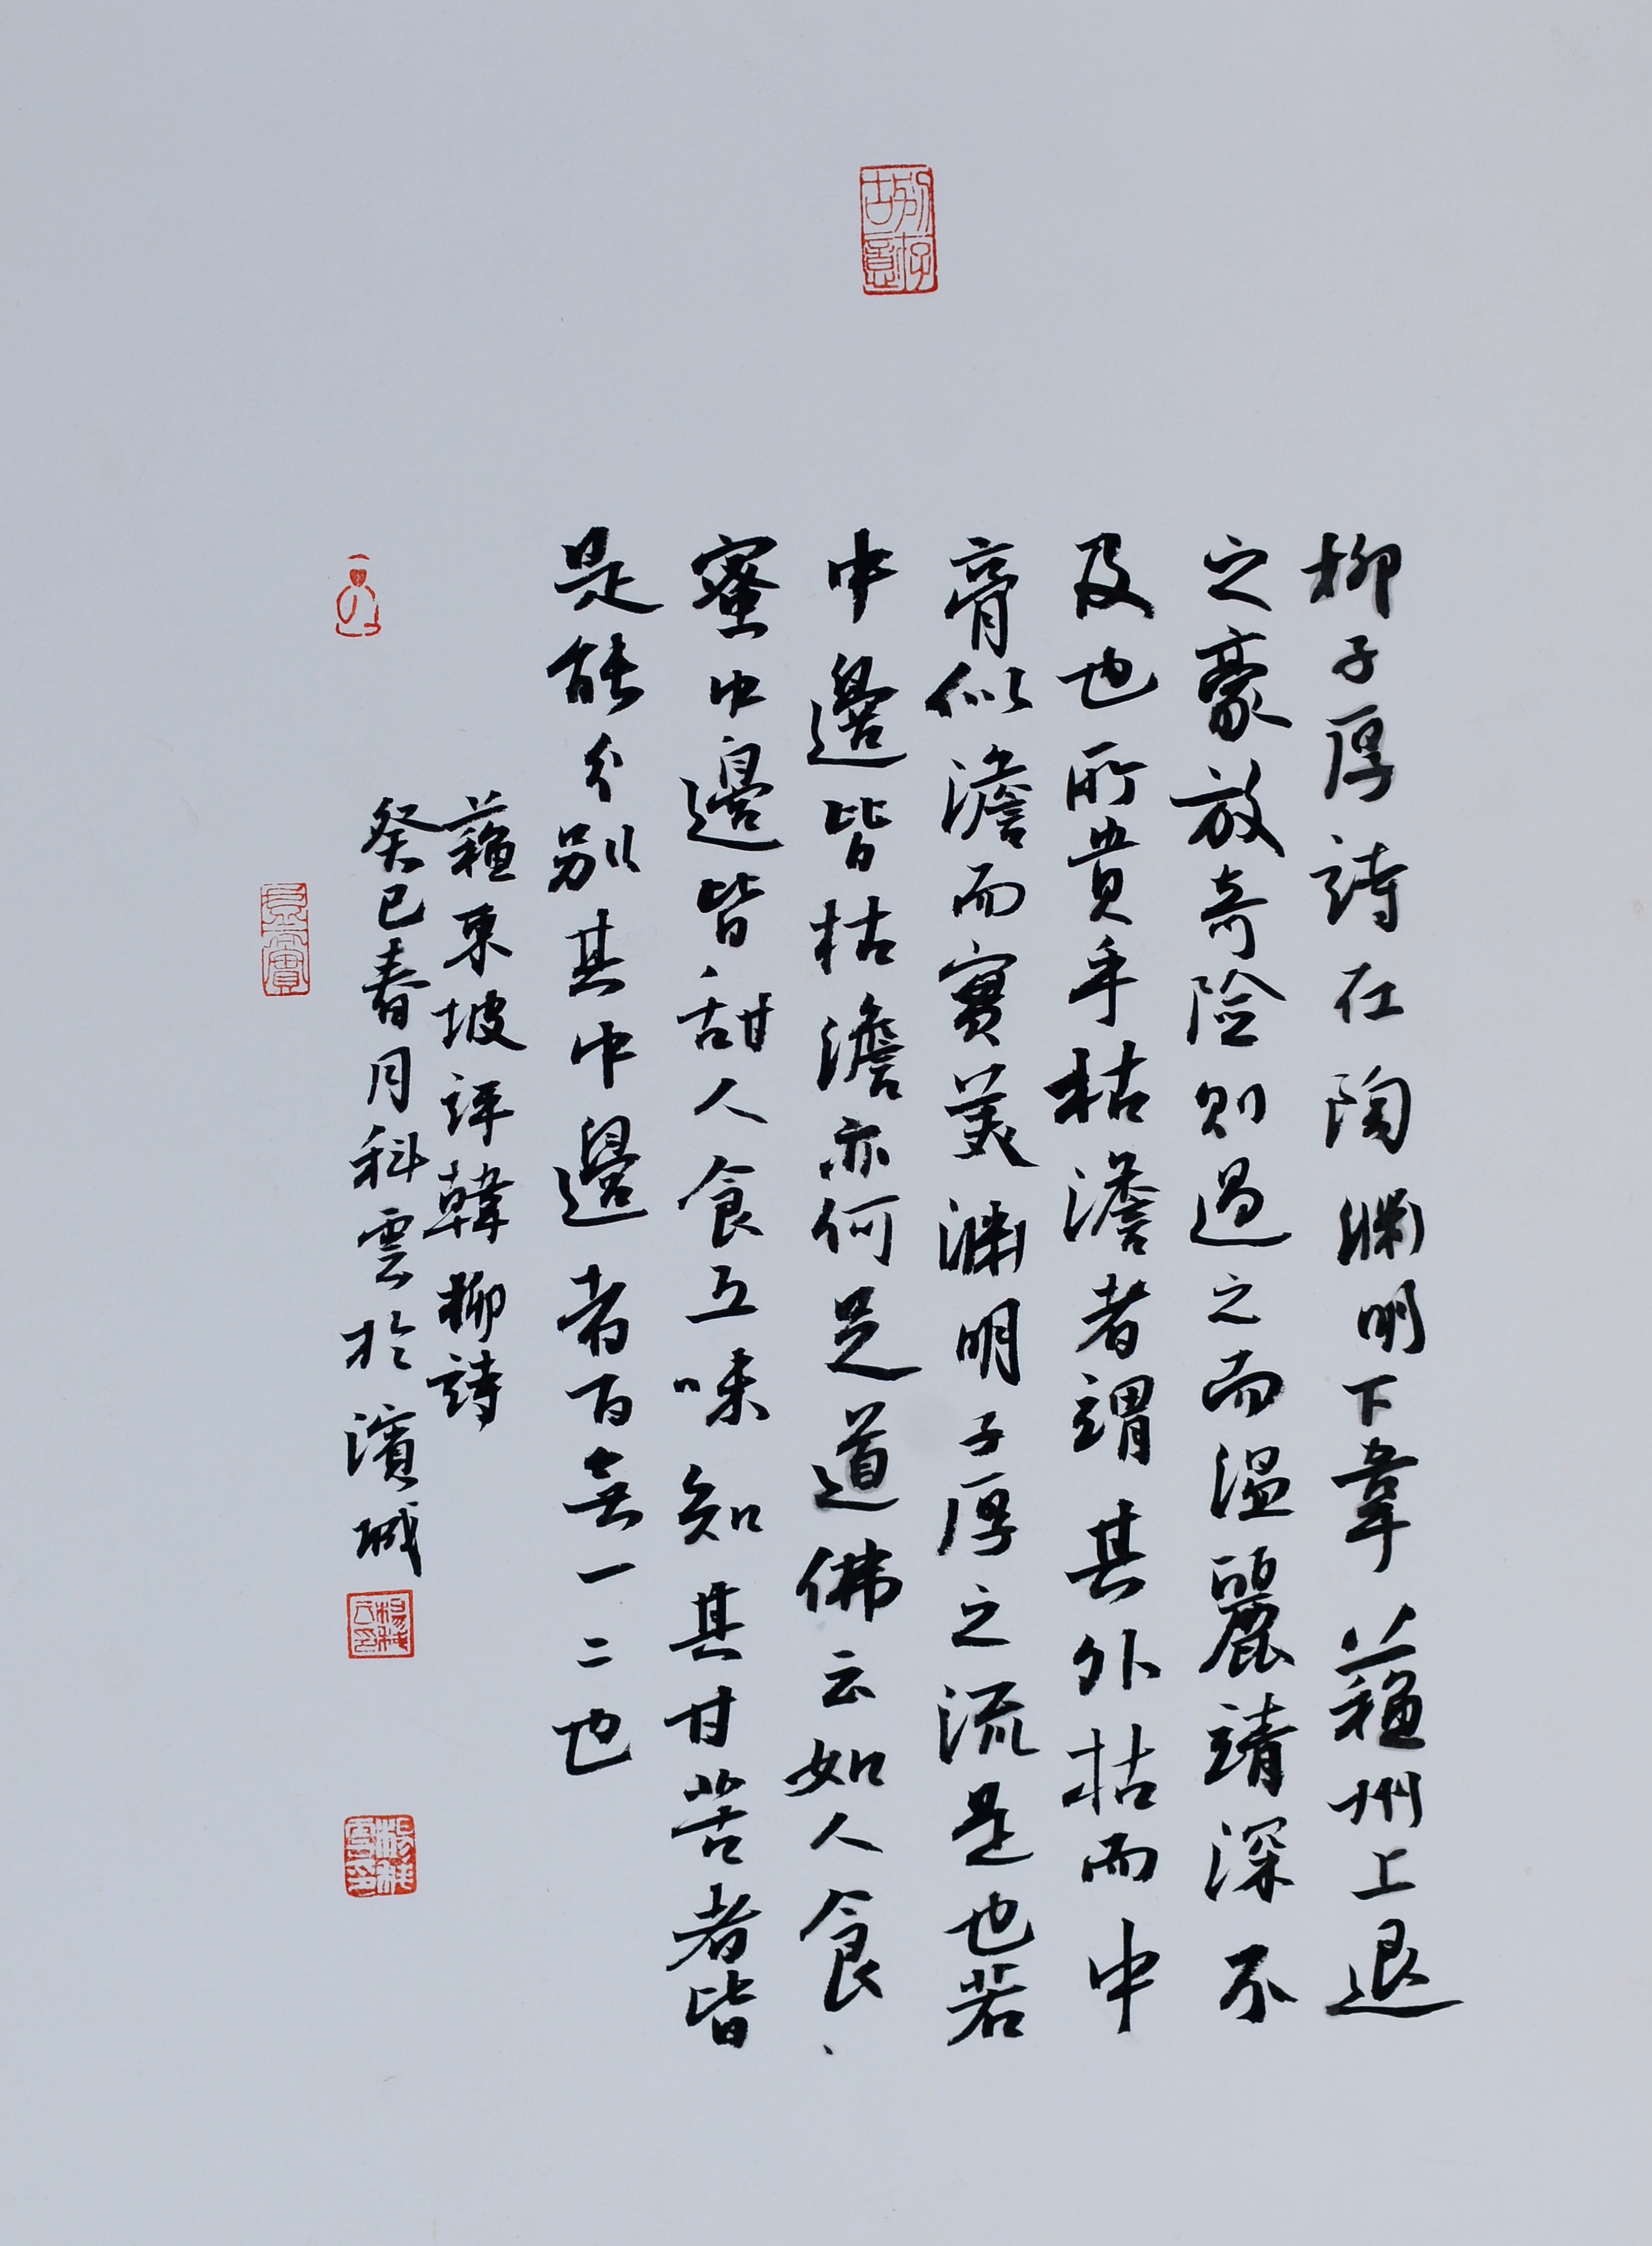 柳子厚詩在陶淵明下韋蘇州上退
之豪放奇險則過之而溫麗靖深不
及也所貴乎枯澹者謂其外枯而中
膏似澹而實美淵明子厚之流是也若
中邊皆枯澹亦何足道佛云如人食
蜜中邊皆甜人食五味知其甘苦者皆
是能分別其中邊者百無一二也
蘇東坡評韓柳詩
癸巳春月科雲於濱城